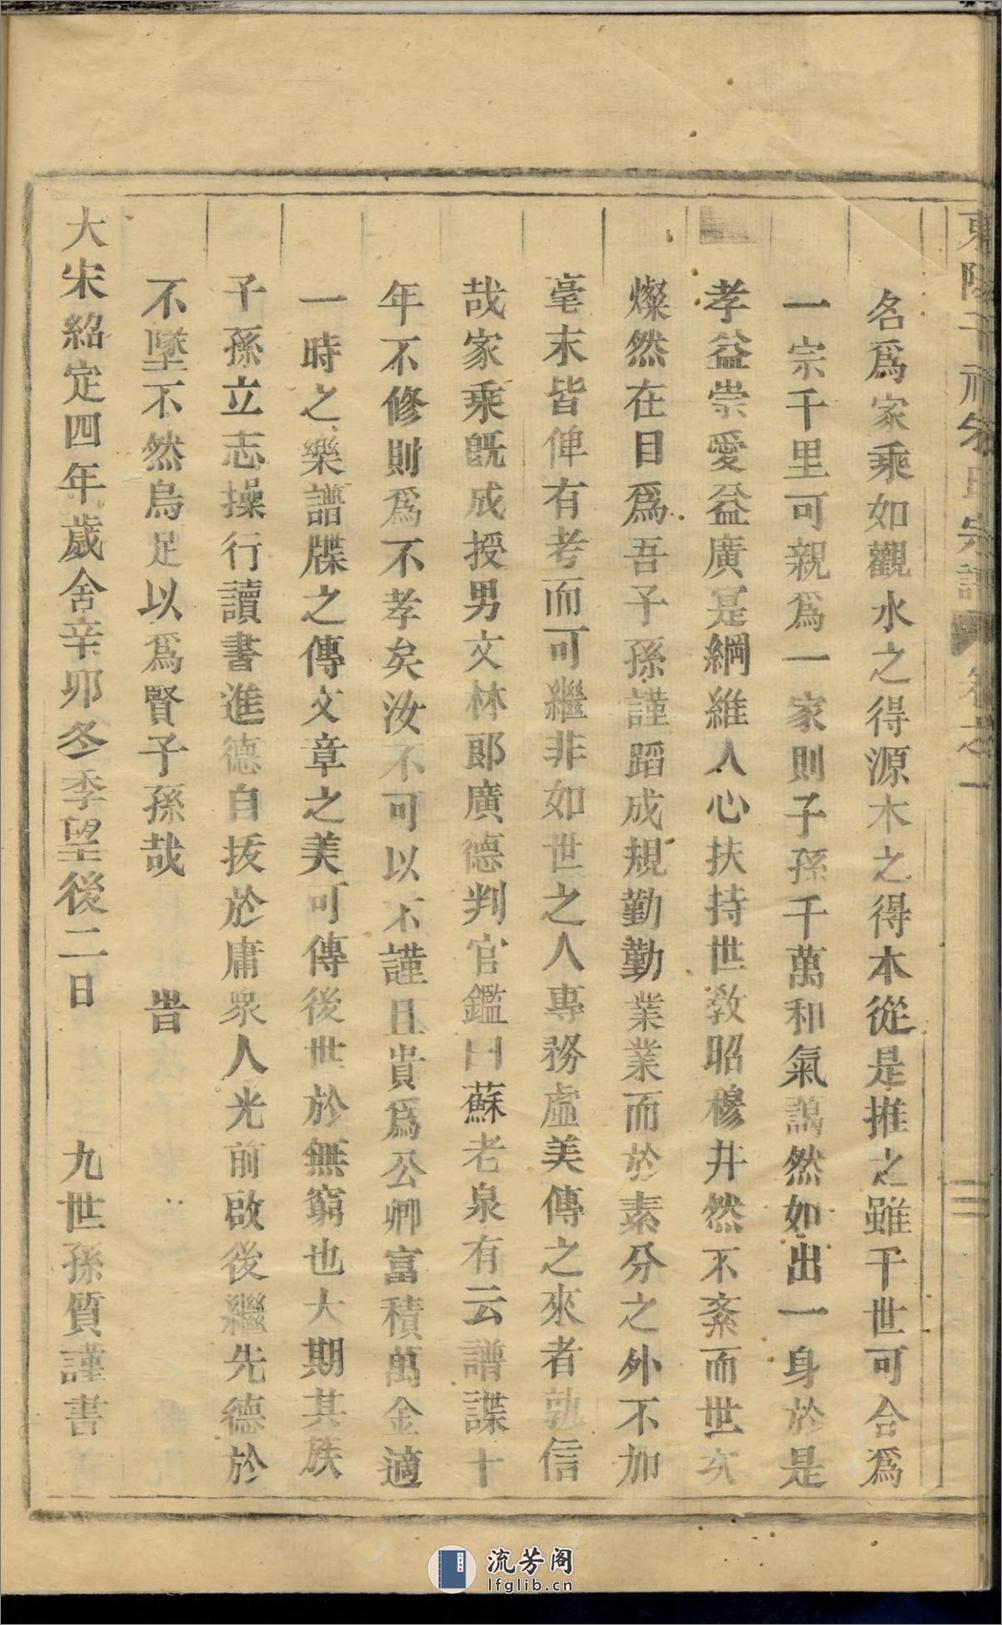 名爲家乘如觀水之得源木之得本從是推之雖千世可合爲
一宗千里可親爲一家則子孫千萬和氣藹然如出一身於是
孝益崇愛益廣寔綱維人心扶持世敎昭穆井然不紊而世次
燦然在目爲吾子孫謹蹈成規勤勤業業而於素分之外不加
毫末皆俾有考而可繼非如世之人專務虛美傳之來者孰信
哉家乘旣成授男文林郞廣德判官鑑曰蘇老泉有云譜諜十
年不修則爲不孝矣汝不可以不謹且貴爲公卿富積萬金適
一時之樂譜牒之傳文章之美可傳後世於無窮也大期其族
子孫立志操行讀書進德自拔於庸衆人光前啟後繼先德於
不墜不然烏足以爲賢子孫哉 旹
大宋紹定四年歲舍辛卯冬季望後二日 九世孫質謹書
東陽 氏宗譜 卷之一
流芳阁
lfglib.cn